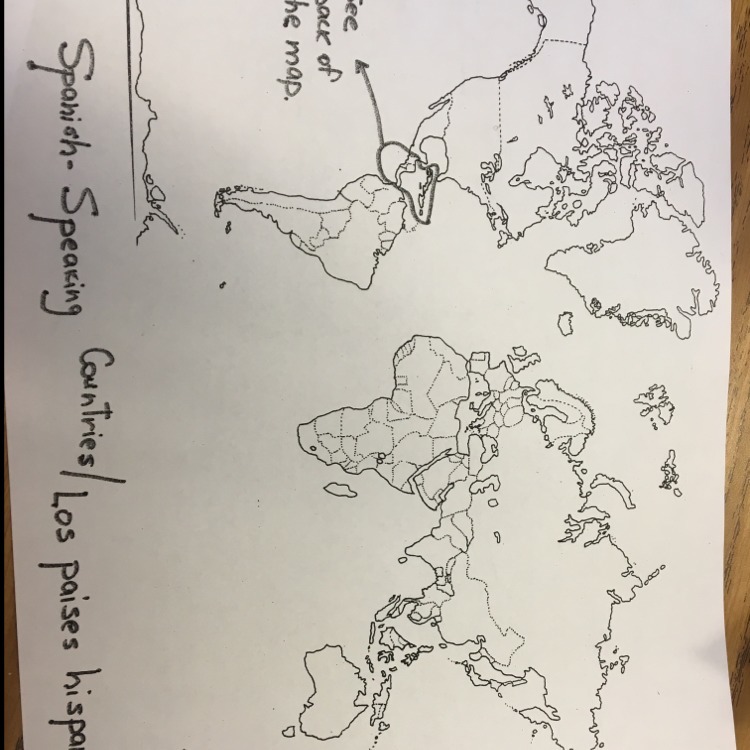 See
back of
the map.
Spanish-Speaking Countries/Los paises hispa